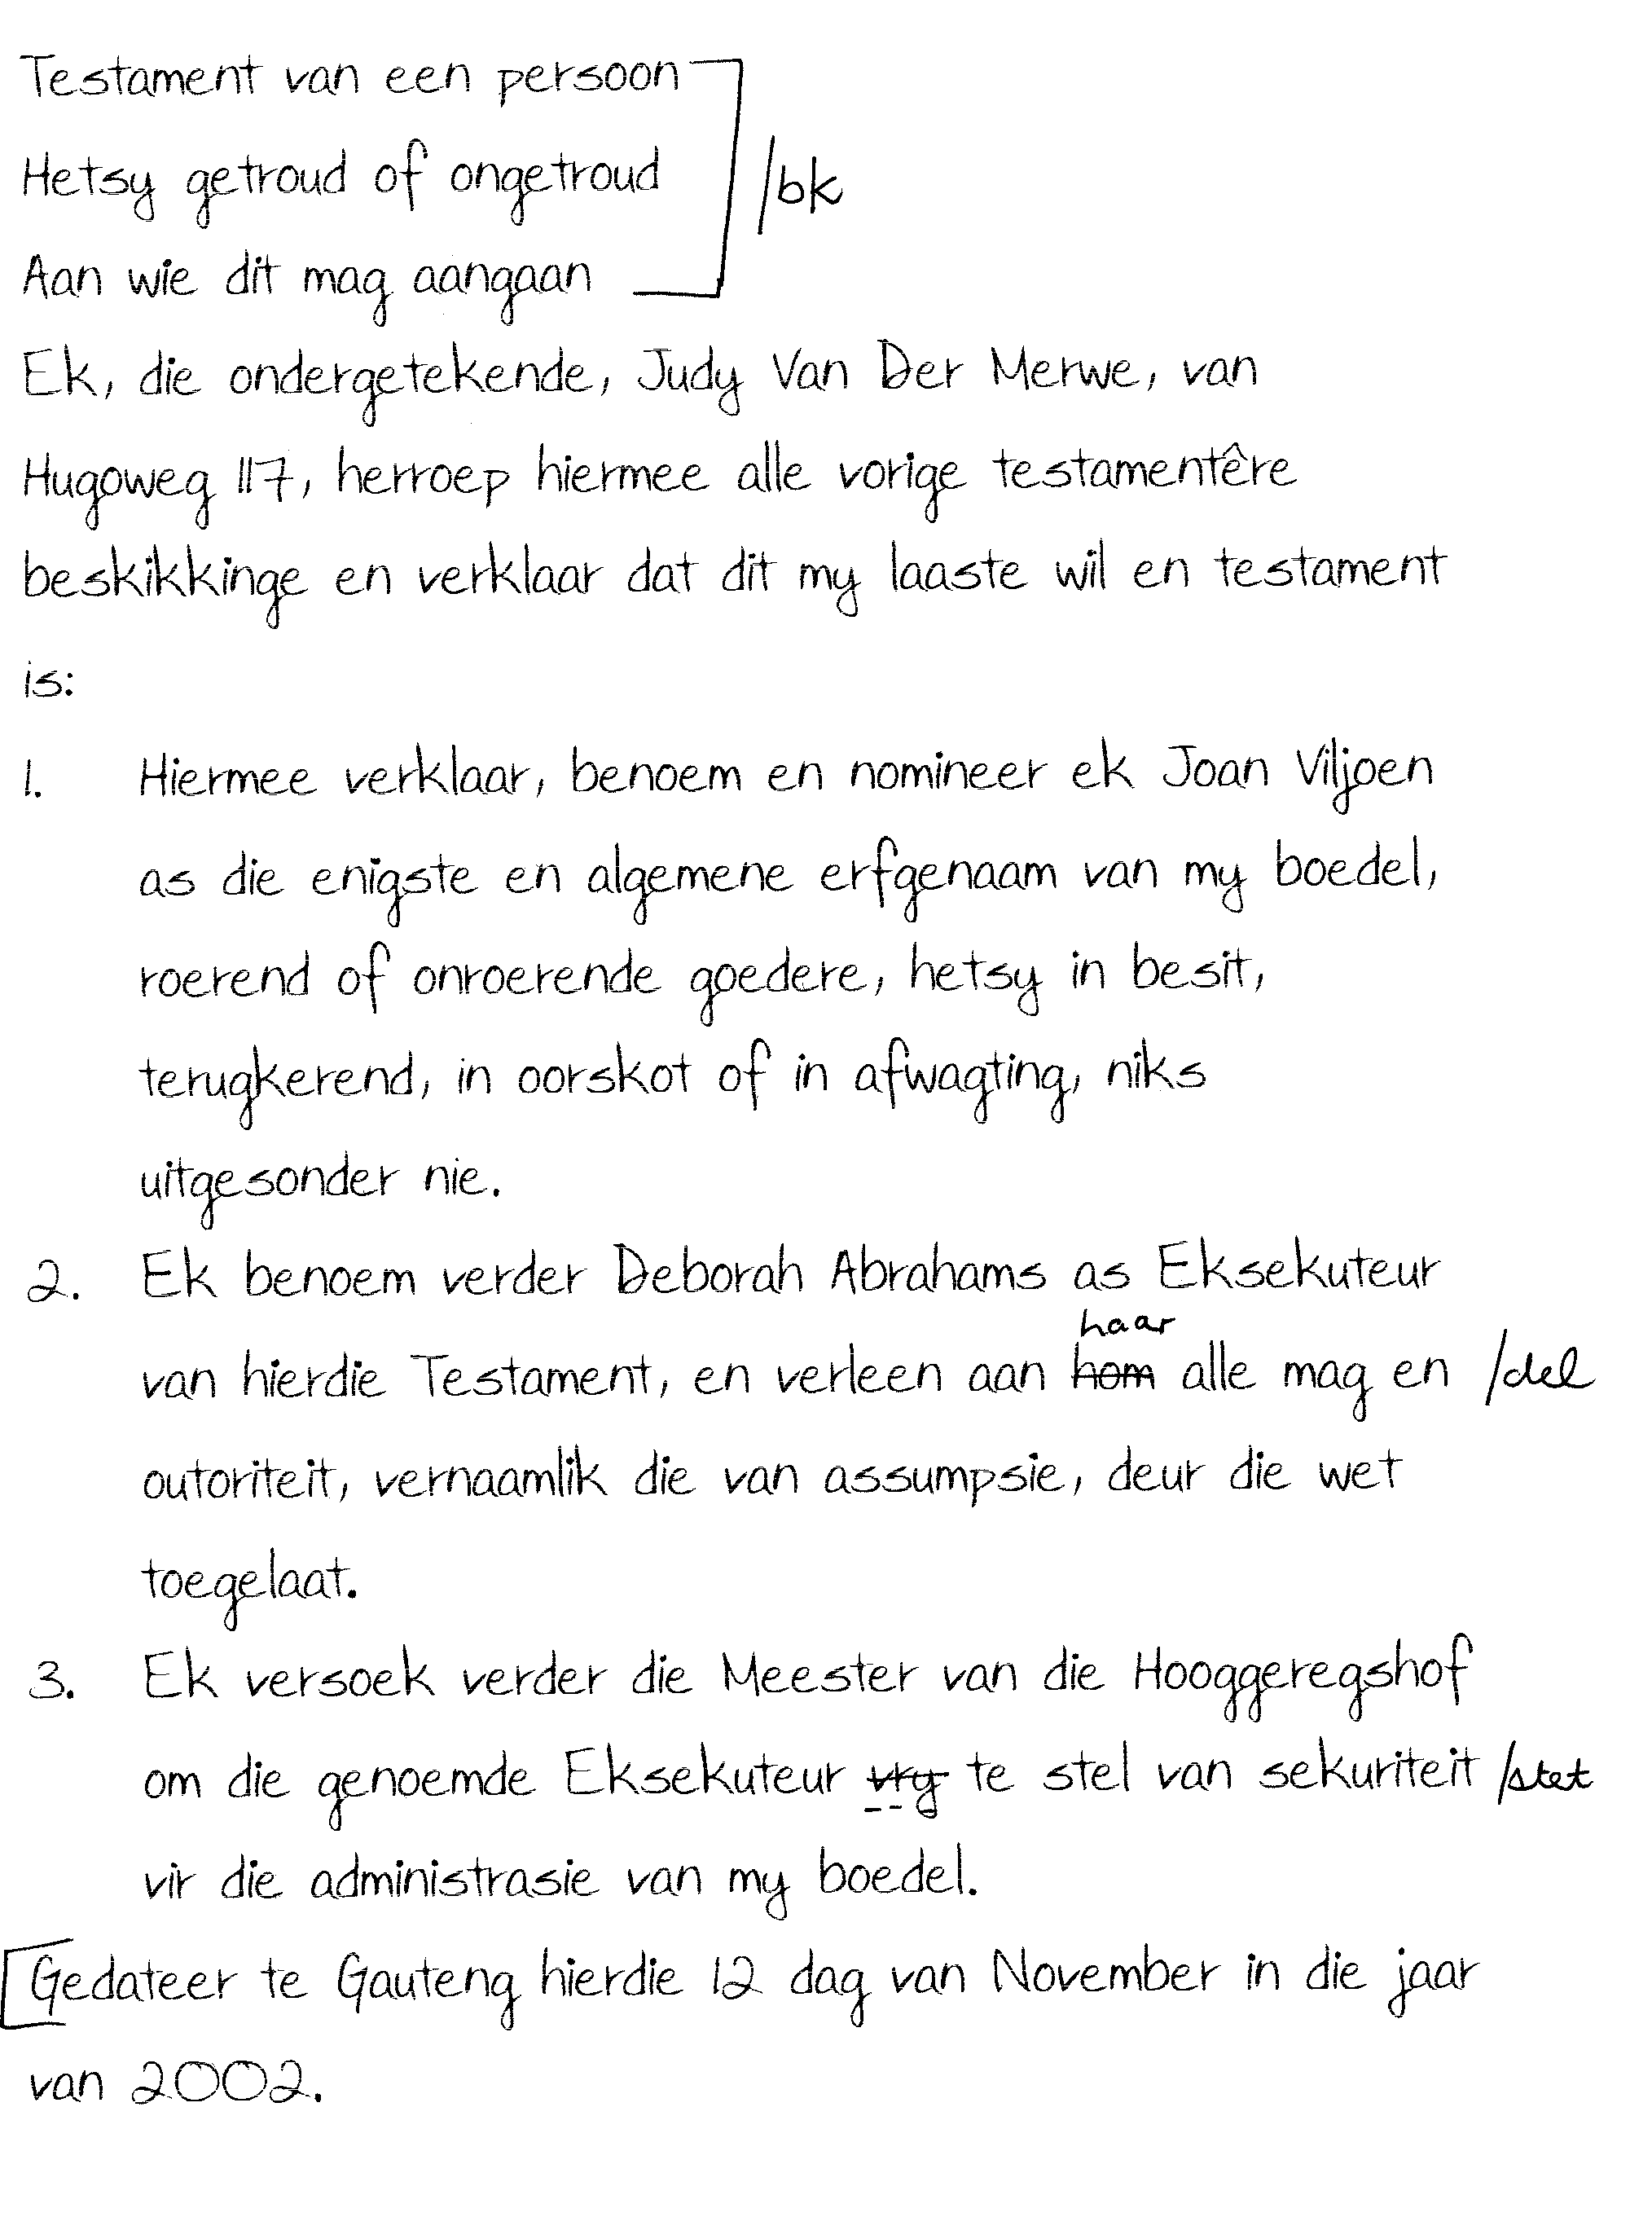 Testament van een persoon
Hetsy getroud of ongetroud /bk
Aan wie dit mag aangaan
Ek, die ondergetekende, Judy Van Der Merwe, van
Hugoweg 117, herroep hiermee alle vorige testamentêre
beskikkinge en verklaar dat dit my laaste wil en testament
is:
1. Hiermee verklaar, benoem en nomineer ek Joan Viljoen
as die enigste en algemene erfgenaam van my boedel,
roerend of onroerende goedere, hetsy in besit,
terugkerend, in oorskot of in afwagting, niks
uitgesonder nie.
2. Ek benoem verder Deborah Abrahams as Eksekuteur
haar
van hierdie Testament, en verleen aan hom alle mag en /del
outoriteit, vernaamlik die van assumpsie, deur die wet
toegelaat.
3. Ek versoek verder die Meester van die Hooggeregshof
om die genoemde Eksekuteur vry te stel van sekuriteit /stet
vir die administrasie van my boedel.
[Gedateer te Gauteng hierdie 12 dag van November in die jaar
van 2002.